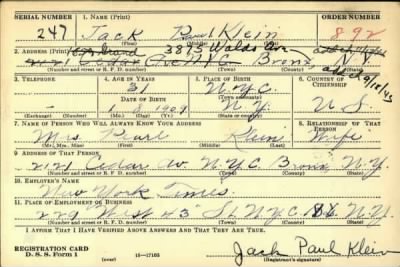 SERIAL NUMBER 1. NAME (Print) ORDER NUMBER
247 Jack Paul Klein 892
(First) (Middle) (Last)
2. ADDRESS (Print) 3875 Waldo Ave
2121 Cedar Ave N.Y.C. Bronx N.Y.
(Number and street or R. F. D. number) (Town) (County) (State)
3. TELEPHONE 4. AGE IN YEARS 5. PLACE OF BIRTH 6. COUNTRY OF CITIZENSHIP
31 N.Y.C.
DATE OF BIRTH
- 1 1909 N.Y. U.S.
(Exchange) (Number) (Mo.) (Day) (Yr.) (State or country)
7. NAME OF PERSON WHO WILL ALWAYS KNOW YOUR ADDRESS 8. RELATIONSHIP OF THAT PERSON
Mrs. Pearl Klein Wife
(Mr., Mrs., Miss) (First) (Middle) (Last)
9. ADDRESS OF THAT PERSON
2121 Cedar Av. N.Y.C. Bronx N.Y.
(Number and street or R. F. D. number) (Town) (County) (State)
10. EMPLOYER'S NAME
New York Times
11. PLACE OF EMPLOYMENT OR BUSINESS
229 West 43 St. N.Y.C. N.Y.
(Number and street or R. F. D. number) (Town) (County) (State)
I AFFIRM THAT I HAVE VERIFIED ABOVE ANSWERS AND THAT THEY ARE TRUE.
REGISTRATION CARD
D. S. S. Form 1 (over) 16—17105 Jack Paul Klein
(Registrant's signature)